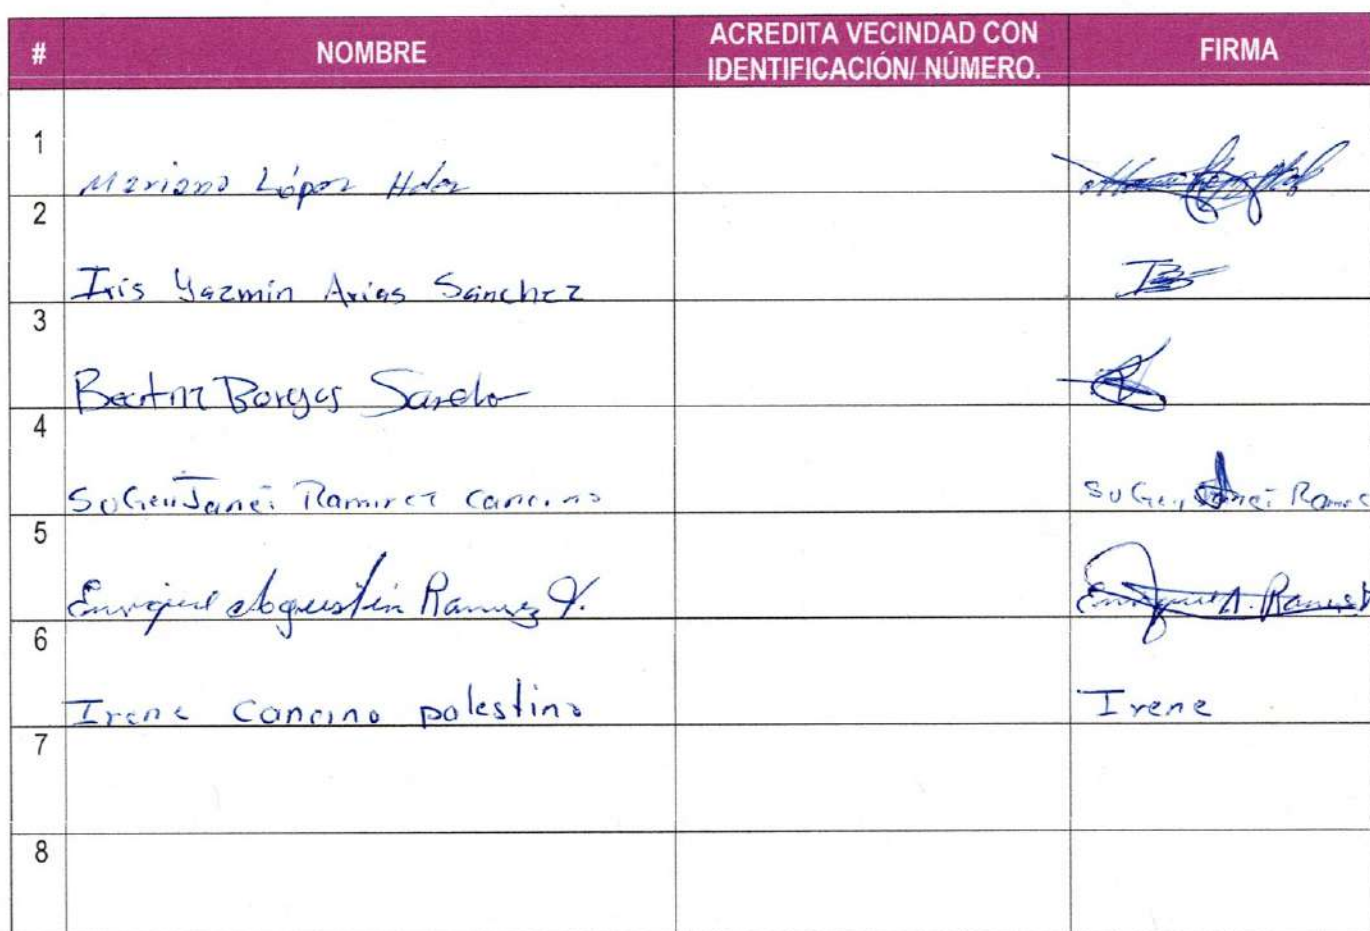 # NOMBRE ACREDITA VECINDAD CON IDENTIFICACIÓN/ NÚMERO. FIRMA
1 Mariano López Hdez
2 Iris Yazmin Arias Sanchez
3 Beatriz Borgas
4 Ramirez Cancino
5 Enrique Agustin Ramirez Enrique A. Ramirez
6 Irene Cancino palestino Irene
7
8